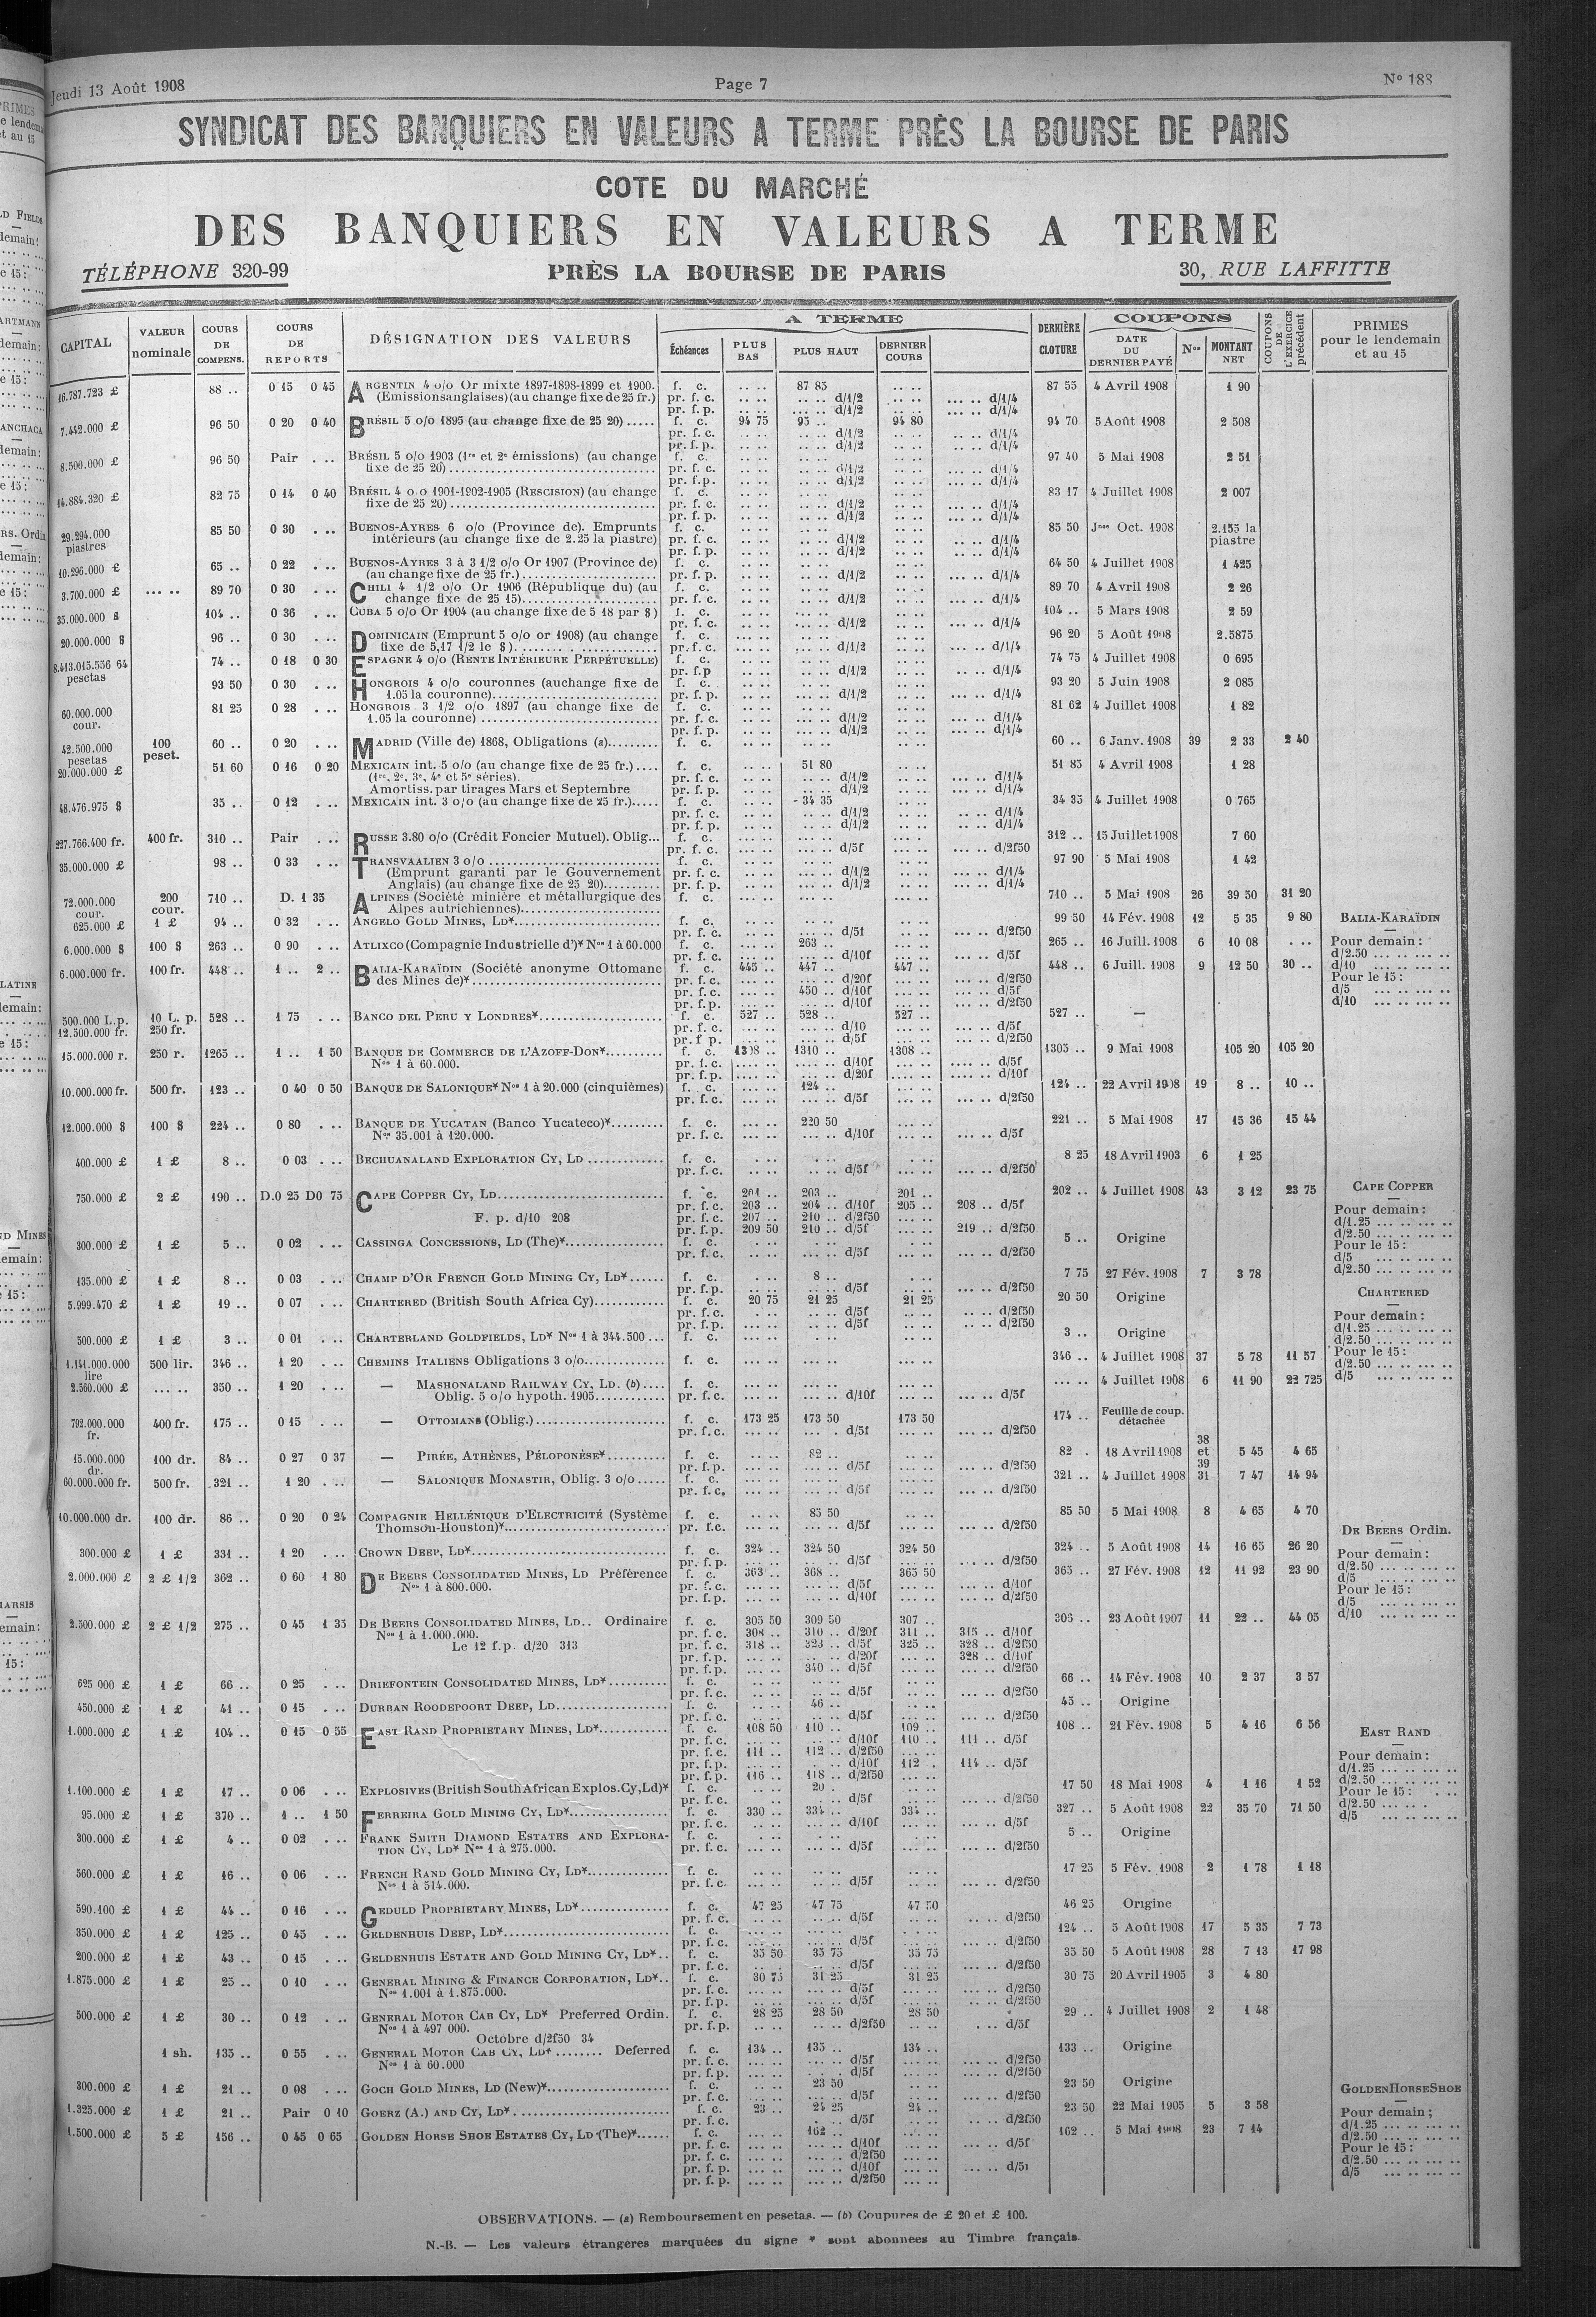 Jeudi 13 Août 1908
Page 7
N° 188
SYNDICAT DES BANQUIERS EN VALEURS A TERME PRÈS LA BOURSE DE PARIS
COTE DU MARCHÉ
DES BANQUIERS EN VALEURS A TERME
TÉLÉPHONE 320-99
PRÈS LA BOURSE DE PARIS
30, RUE LAFFITTE
CAPITAL | VALEUR nominale | COURS DE COMPENS. | COURS DE REPORTS | DÉSIGNATION DES VALEURS | A TERME | Échéances | PLUS BAS | PLUS HAUT | DERNIER COURS | DERNIÈRE CLOTURE | COUPONS | DATE DU DERNIER PAYÉ | Nos | MONTANT NET | COUPONS DE L'EXERCICE précédent | PRIMES pour le lendemain et au 15
16.787.723 £ 88 .. 0 15 0 45 ARGENTIN 4 o/o Or mixte 1897-1898-1899 et 1900. f. c. .. .. 87 85 .. .. 87 55 4 Avril 1908 1 90
(Emissions anglaises) (au change fixe de 25 fr.) pr. f. c. .. .. .. .. d/1/2 .. .. ... .. d/1/4
pr. f. p. .. .. ... .. d/1/2 .. .. ... .. d/1/4
7.442.000 £ 96 50 0 20 0 40 BRÉSIL 5 o/o 1895 (au change fixe de 25 20) ..... f. c. 94 75 95 .. 94 80 94 70 5 Août 1908 2 508
pr. f. c. .. .. .. .. d/1/2 .. .. .. .. d/1/4
pr. f. p. .. .. .. .. d/1/2 .. .. ... .. d/1/4
8.500.000 £ 96 50 Pair . .. BRÉSIL 5 o/o 1903 (1re et 2e émissions) (au change f. c. 97 40 5 Mai 1908 2 51
fixe de 25 20) pr. f. c. d/1/2 d/1/4
pr. f. p. d/1/2 d/1/4
14.884.320 £ 82 75 0 14 0 40 BRÉSIL 4 o o 1901-1902-1905 (RESCISION) (au change f. c. 83 17 4 Juillet 1908 2 007
fixe de 25 20) pr. f. c. d/1/2 d/1/4
pr. f. p. d/1/2 d/1/4
29.294.000 piastres 85 50 0 30 . .. BUENOS-AYRES 6 o/o (Province de). Emprunts f. c. 85 50 Jnes Oct. 1908 2.155 la piastre
intérieurs (au change fixe de 2.25 la piastre) pr. f. c. d/1/2 d/1/4
pr. f. p. d/1/2 d/1/4
10.296.000 £ 65 .. 0 22 . .. BUENOS-AYRES 3 à 3 1/2 o/o Or 1907 (Province de) f. c. 64 50 4 Juillet 1908 1 425
(au change fixe de 25 fr.) pr. f. p. d/1/2 d/1/4
3.700.000 £ ... .. 89 70 0 30 . .. CHILI 4 1/2 o/o Or 1906 (République du) (au f. c. 89 70 4 Avril 1908 2 26
change fixe de 25 15) pr. f. c. d/1/2 d/1/4
35.000.000 $ 104 .. 0 36 . .. CUBA 5 o/o Or 1904 (au change fixe de 5 18 par $) f. c. 104 .. 5 Mars 1908 2 59
pr. f. c. d/1/2 d/1/4
20.000.000 $ 96 .. 0 30 . .. DOMINICAIN (Emprunt 5 o/o or 1908) (au change f. c. 96 20 5 Août 1908 2.5875
fixe de 5,17 1/2 le $) pr. f. c. d/1/2 d/1/4
8.413.015.556 64 pesetas 74 .. 0 18 0 30 ESPAGNE 4 o/o (RENTE INTÉRIEURE PERPÉTUELLE) f. c. 74 75 4 Juillet 1908 0 695
pr. f.p d/1/2 d/1/4
93 50 0 30 . .. HONGROIS 4 o/o couronnes (au change fixe de f. c. 93 20 5 Juin 1908 2 085
1.05 la couronne) pr. f. p. d/1/2 d/1/4
60.000.000 cour. 81 25 0 28 . .. HONGROIS 3 1/2 o/o 1897 (au change fixe de f. c. 81 62 4 Juillet 1908 1 82
1.05 la couronne) pr. f. c. d/1/2 d/1/4
pr. f. p. d/1/2 d/1/4
42.500.000 pesetas 100 peset. 60 .. 0 20 . .. MADRID (Ville de) 1868, Obligations (a) f. c. 60 .. 6 Janv. 1908 39 2 33 2 40
20.000.000 £ 51 60 0 16 0 20 MEXICAIN int. 5 o/o (au change fixe de 25 fr.) f. c. 51 80 51 85 4 Avril 1908 1 28
(1re, 2e, 3e, 4e et 5e séries). pr. f. c. d/1/2 d/1/4
Amortiss. par tirages Mars et Septembre pr. f. p. d/1/2 d/1/4
48.476.975 $ 35 .. 0 12 . .. MEXICAIN int. 3 o/o (au change fixe de 25 fr.) f. c. 34 35 34 35 4 Juillet 1908 0 765
pr. f. c. d/1/2 d/1/4
pr. f. p. d/1/2 d/1/4
227.766.400 fr. 400 fr. 310 .. Pair . .. RUSSE 3.80 o/o (Crédit Foncier Mutuel). Oblig... f. c. 312 .. 15 Juillet 1908 7 60
pr. f. c. d/5f d/2f50
35.000.000 £ 98 .. 0 33 . .. TRANSVAALIEN 3 o/o f. c. 97 90 5 Mai 1908 1 42
(Emprunt garanti par le Gouvernement pr. f. c. d/1/2 d/1/4
Anglais) (au change fixe de 25 20) pr. f. p. d/1/2 d/1/4
72.000.000 cour. 200 cour. 710 .. D. 1 35 ALPINES (Société minière et métallurgique des f. c. 710 .. 5 Mai 1908 26 39 50 31 20
Alpes autrichiennes)
625.000 £ 1 £ 94 .. 0 32 . .. ANGELO GOLD MINES, LD* f. c. 99 50 14 Fév. 1908 12 5 35 9 80
pr. f. c. d/5f d/2f50
6.000.000 $ 100 $ 263 .. 0 90 . .. ATLIXCO (Compagnie Industrielle d')* Nos 1 à 60.000 f. c. 263 .. 265 .. 16 Juill. 1908 6 10 08 . ..
pr. f. c. d/10f d/5f
6.000.000 fr. 100 fr. 448 .. 1 .. 2 .. BALIA-KARAÏDIN (Société anonyme Ottomane f. c. 445 .. 447 .. 447 .. 448 .. 6 Juill. 1908 9 12 50 30 ..
des Mines de)* pr. f. c. d/20f d/2f50
pr. f. c. 450 .. d/10f d/5f
pr. f. p. d/10f d/2f50
500.000 L.p. 10 L. p. 528 .. 1 75 . .. BANCO DEL PERU Y LONDRES* f. c. 527 .. 528 .. 527 .. 527 .. —
12.500.000 fr. 250 fr. pr. f. c. d/10 d/5f
pr. f. p. d/5f d/2f50
15.000.000 r. 250 r. 1265 .. 1 .. 1 50 BANQUE DE COMMERCE DE L'AZOFF-DON* f. c. 1308 .. 1310 .. 1308 .. 1305 .. 9 Mai 1908 105 20 105 20
Nos 1 à 60.000. pr. f. c. d/10f d/5f
pr. f. p. d/20f d/10f
10.000.000 fr. 500 fr. 123 .. 0 40 0 50 BANQUE DE SALONIQUE* Nos 1 à 20.000 (cinquièmes) f. c. 124 .. 124 .. 22 Avril 1908 19 8 .. 10 ..
pr. f. c. d/5f d/2f50
12.000.000 $ 100 $ 224 .. 0 80 . .. BANQUE DE YUCATAN (Banco Yucateco)* f. c. 220 50 221 .. 5 Mai 1908 17 15 36 15 44
Nos 35.001 à 120.000. pr. f. c. d/10f d/5f
400.000 £ 1 £ 8 .. 0 03 . .. BECHUANALAND EXPLORATION CY, LD f. c. 8 25 18 Avril 1903 6 1 25
pr. f. c. d/5f d/2f50
750.000 £ 2 £ 190 .. D.0 25 D0 75 CAPE COPPER CY, LD f. c. 201 .. 203 .. 201 .. 202 .. 4 Juillet 1908 43 3 12 23 75
pr. f. c. 203 .. 204 .. d/10f 205 .. 208 .. d/5f
F. p. d/10 208 pr. f. c. 207 .. 210 .. d/2f50
pr. f. p. 209 50 210 .. d/5f 219 .. d/2f50
300.000 £ 1 £ 5 .. 0 02 . .. CASSINGA CONCESSIONS, LD (The)* f. c. 5 .. Origine
pr. f. c. d/5f d/2f50
135.000 £ 1 £ 8 .. 0 03 . .. CHAMP D'OR FRENCH GOLD MINING CY, LD* f. c. 8 .. 7 75 27 Fév. 1908 7 3 78
pr. f. p. d/5f d/2f50
5.999.470 £ 1 £ 19 .. 0 07 . .. CHARTERED (British South Africa Cy) f. c. 20 75 21 25 21 25 20 50 Origine
pr. f. c. d/5f d/2f50
pr. f. p. d/5f d/2f50
500.000 £ 1 £ 3 .. 0 01 . .. CHARTERLAND GOLDFIELDS, LD* Nos 1 à 344.500 ... f. c. 3 .. Origine
1.141.000.000 lire 500 lir. 346 .. 1 20 . .. CHEMINS ITALIENS Obligations 3 o/o f. c. 346 .. 4 Juillet 1908 37 5 78 11 57
2.560.000 £ ... .. 350 .. 1 20 . .. — MASHONALAND RAILWAY CY, LD. (b) f. c. ... .. 4 Juillet 1908 6 11 90 22 725
Oblig. 5 o/o hypoth. 1905 pr. f. c. d/10f d/5f
792.000.000 fr. 400 fr. 175 .. 0 15 . .. — OTTOMANS (Oblig.) f. c. 173 25 173 50 173 50 174 .. Feuille de coup. détachée
pr. f. c. d/5f d/2f50
15.000.000 dr. 100 dr. 84 .. 0 27 0 37 — PIRÉE, ATHÈNES, PÉLOPONÈSE* f. c. 82 .. 82 . 18 Avril 1908 38 et 39 5 45 4 65
pr. f. p. d/5f d/2f50
60.000.000 fr. 500 fr. 321 .. 1 20 . .. — SALONIQUE MONASTIR, Oblig. 3 o/o f. c. 321 .. 4 Juillet 1908 31 7 47 14 94
pr. f. c. d/5f d/2f50
10.000.000 dr. 100 dr. 86 .. 0 20 0 24 COMPAGNIE HELLÉNIQUE D'ELECTRICITÉ (Système f. c. 85 50 85 50 5 Mai 1908 8 4 65 4 70
Thomson-Houston)* pr. f.c. d/5f d/2f50
300.000 £ 1 £ 331 .. 1 20 . .. CROWN DEEP, LD* f. c. 324 .. 324 50 324 50 324 .. 5 Août 1908 14 16 65 26 20
pr. f. p. d/5f d/2f50
2.000.000 £ 2 £ 1/2 362 .. 0 60 1 80 DE BEERS CONSOLIDATED MINES, LD Préférence f. c. 363 .. 368 .. 365 50 365 .. 27 Fév. 1908 12 11 92 23 90
Nos 1 à 800.000. pr. f. c. d/5f d/10f
pr. f. p. d/10f d/2f50
2.500.000 £ 2 £ 1/2 275 .. 0 45 1 35 DE BEERS CONSOLIDATED MINES, LD.. Ordinaire f. c. 305 50 309 50 307 .. 305 .. 23 Août 1907 11 22 .. 44 05
Nos 1 à 1.000.000. pr. f. c. 308 .. 310 .. d/20f 311 .. 315 .. d/10f
Le 12 f.p. d/20 313 pr. f. c. 318 .. 323 .. d/5f 325 .. 328 .. d/2f50
pr. f. p. d/20f 328 .. d/10f
pr. f. p. 340 .. d/5f d/2f50
625 000 £ 1 £ 66 .. 0 25 . .. DRIEFONTEIN CONSOLIDATED MINES, LD* f. c. 66 .. 14 Fév. 1908 10 2 37 3 57
pr. f. c. d/5f d/2f50
450.000 £ 1 £ 41 .. 0 15 . .. DURBAN ROODEPOORT DEEP, LD f. c. 46 .. 45 .. Origine
pr. f. c. d/5f d/2f50
1.000.000 £ 1 £ 104 .. 0 15 0 55 EAST RAND PROPRIETARY MINES, LD* f. c. 108 50 110 .. 109 .. 108 .. 21 Fév. 1908 5 4 16 6 56
pr. f. c. d/10f 110 .. 111 .. d/5f
pr. f. c. 111 .. 112 .. d/2f50
pr. f. p. d/10f 112 . 114 .. d/5f
pr. f. p. 116 .. 118 .. d/2f50
1.100.000 £ 1 £ 17 .. 0 06 . .. EXPLOSIVES (British South African Explos. Cy, Ld)* f. c. 20 . 17 50 18 Mai 1908 4 1 16 1 52
pr. f. c. d/5f d/2f50
95.000 £ 1 £ 370 .. 1 .. 1 50 FERREIRA GOLD MINING CY, LD* f. c. 330 .. 334 .. 334 .. 327 .. 5 Août 1908 22 35 70 71 50
pr. f. c. d/10f d/5f
300.000 £ 1 £ 4 .. 0 02 . .. FRANK SMITH DIAMOND ESTATES AND EXPLORA- f. c. 5 .. Origine
TION CY, LD* Nos 1 à 275.000. pr. f. c. d/5f d/2f50
560.000 £ 1 £ 16 .. 0 06 . .. FRENCH RAND GOLD MINING CY, LD* f. c. 17 25 5 Fév. 1908 2 1 78 1 18
Nos 1 à 514.000. pr. f. c. d/5f d/2f50
590.100 £ 1 £ 44 .. 0 16 . .. GEDULD PROPRIETARY MINES, LD* f. c. 47 25 47 75 47 50 46 25 Origine
pr. f. c. d/5f d/2f50
350.000 £ 1 £ 125 .. 0 45 . .. GELDENHUIS DEEP, LD* f. c. 124 .. 5 Août 1908 17 5 35 7 73
pr. f. c. d/5f d/2f50
200.000 £ 1 £ 43 .. 0 15 . .. GELDENHUIS ESTATE AND GOLD MINING CY, LD* f. c. 35 50 35 75 35 75 35 50 5 Août 1908 28 7 13 17 98
pr. f. c. d/5f d/2f50
1.875.000 £ 1 £ 25 .. 0 10 . .. GENERAL MINING & FINANCE CORPORATION, LD* f. c. 30 75 31 25 31 25 30 75 20 Avril 1905 3 4 80
Nos 1.001 à 1.875.000. pr. f. c. d/5f d/2f50
pr. f. p. d/5f d/2f50
500.000 £ 1 £ 30 .. 0 12 . .. GENERAL MOTOR CAB CY, LD* Preferred Ordin. f. c. 28 25 28 50 28 50 29 .. 4 Juillet 1908 2 1 48
Nos 1 à 497 000. pr. f. p. d/2f50 d/5f
Octobre d/2f50 34
1 sh. 135 .. 0 55 . .. GENERAL MOTOR CAB CY, LD* ........ Deferred f. c. 134 .. 135 .. 134 .. 133 .. Origine
Nos 1 à 60.000 pr. f. c. d/5f d/2f50
pr. f. p. d/5f d/2f50
300.000 £ 1 £ 21 .. 0 08 . .. GOCH GOLD MINES, LD (New)* f. c. 23 50 23 50 Origine
pr. f. c. d/5f d/2f50
1.325.000 £ 1 £ 21 .. Pair 0 10 GOERZ (A.) AND CY, LD* f. c. 23 .. 24 25 24 .. 23 50 22 Mai 1905 5 3 58
pr. f. c. d/5f d/2f50
1.500.000 £ 5 £ 156 .. 0 45 0 65 GOLDEN HORSE SHOE ESTATES CY, LD (The)* f. c. 162 .. 162 .. 5 Mai 1908 23 7 14
pr. f. c. d/10f d/5f
pr. f. c. d/2f50
pr. f. p. d/10f d/5f
pr. f. p. d/2f50
BALIA-KARAÏDIN
Pour demain :
d/2.50 ... .. ... ..
d/10 ... .. ... ..
Pour le 15 :
d/5 ... .. ... ..
d/10 ... .. ... ..
CAPE COPPER
Pour demain :
d/1.25 ... .. ... ..
d/2.50 ... .. ... ..
Pour le 15 :
d/5 ... .. ... ..
d/2.50 ... .. ... ..
CHARTERED
Pour demain :
d/1.25 ... .. ... ..
d/2.50 ... .. ... ..
Pour le 15 :
d/2.50 ... .. ... ..
d/5 ... .. ... ..
DE BEERS Ordin.
Pour demain :
d/2.50 ... .. ... ..
d/5 ... .. ... ..
Pour le 15 :
d/5 ... .. ... ..
d/10 ... .. ... ..
EAST RAND
Pour demain :
d/1.25 ... .. ... ..
d/2.50 ... .. ... ..
Pour le 15 :
d/2.50 ... .. .
d/5 ... .. ... ..
GOLDEN HORSE SHOE
Pour demain ;
d/1.25 ... .. ... ..
d/2.50 ... .. ... ..
Pour le 15 :
d/2.50 ... .. ... ..
d/5 ... .. ... ..
OBSERVATIONS. — (a) Remboursement en pesetas. — (b) Coupures de £ 20 et £ 100.
N.-B. — Les valeurs étrangères marquées du signe * sont abonnées au Timbre français.